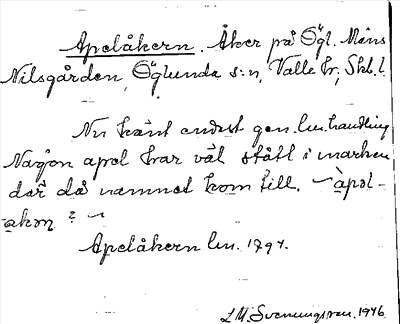 Apelåkern. Åker på Ögl. Måns
Nilsgården, Öglunda s:n, Valle hr, Skb. l.
Nu känt endast gen. lm. handling
Någon apel har väl stått i marken
där då namnet kom till. ~ àpəl-
akən ? ~
Apelåkern lm. 1794.
L.M. Svenungsson. 1946